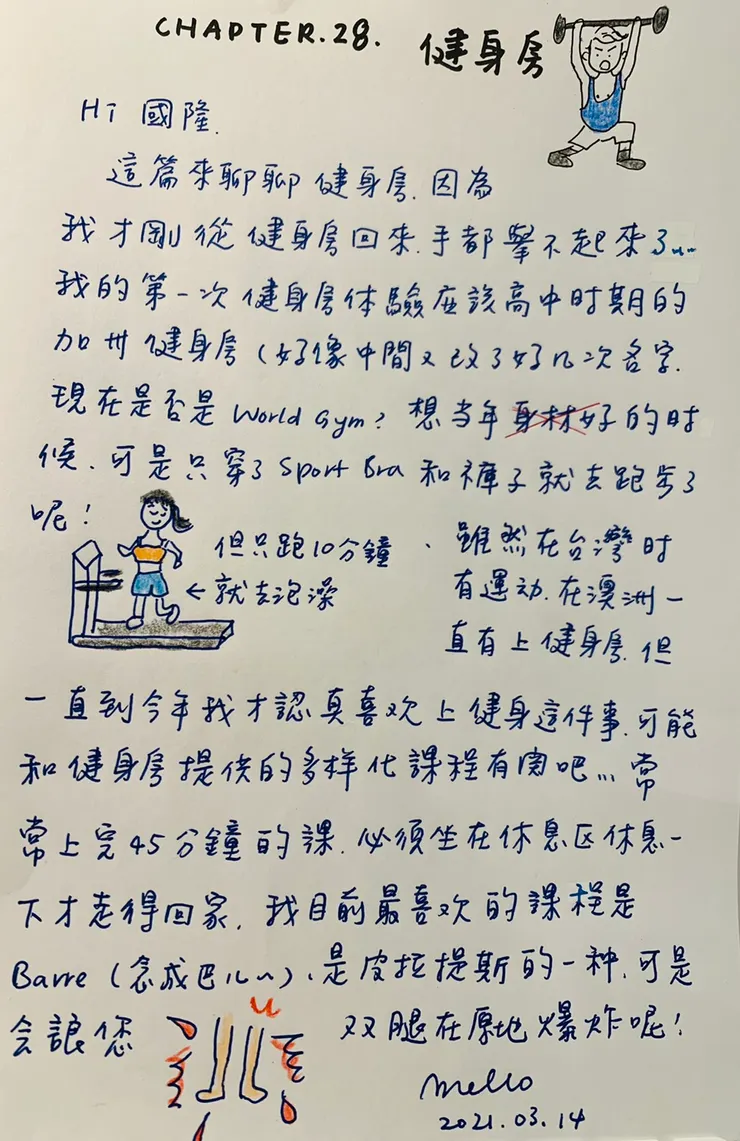 CHAPTER.28. 健身房
Hi 國隆.
這篇來聊聊健身房.因為
我才剛從健身房回來.手都舉不起來了...
我的第一次健身房体驗在該高中时期的
加州健身房(好像中間又改了好几次名字.
現在是否是World Gym? 想当年身材好的时
候.可是只穿了Sport Bra和褲子就去跑步了
呢!
但只跑10分鐘、
←就去泡澡
雖然在台灣时
有運动.在澳洲一
直有上健身房.但
一直到今年我才認真喜欢上健身這件事.可能
和健身房提供的多样化課程有関吧...常
常上完45分鐘的課.必須坐在休息区休息一
下才走得回家.我目前最喜欢的課程是
Barre(念成巴儿~)、是皮拉提斯的一种.可是
会讓您
双腿在原地爆炸呢!
Mello
2021.03.14